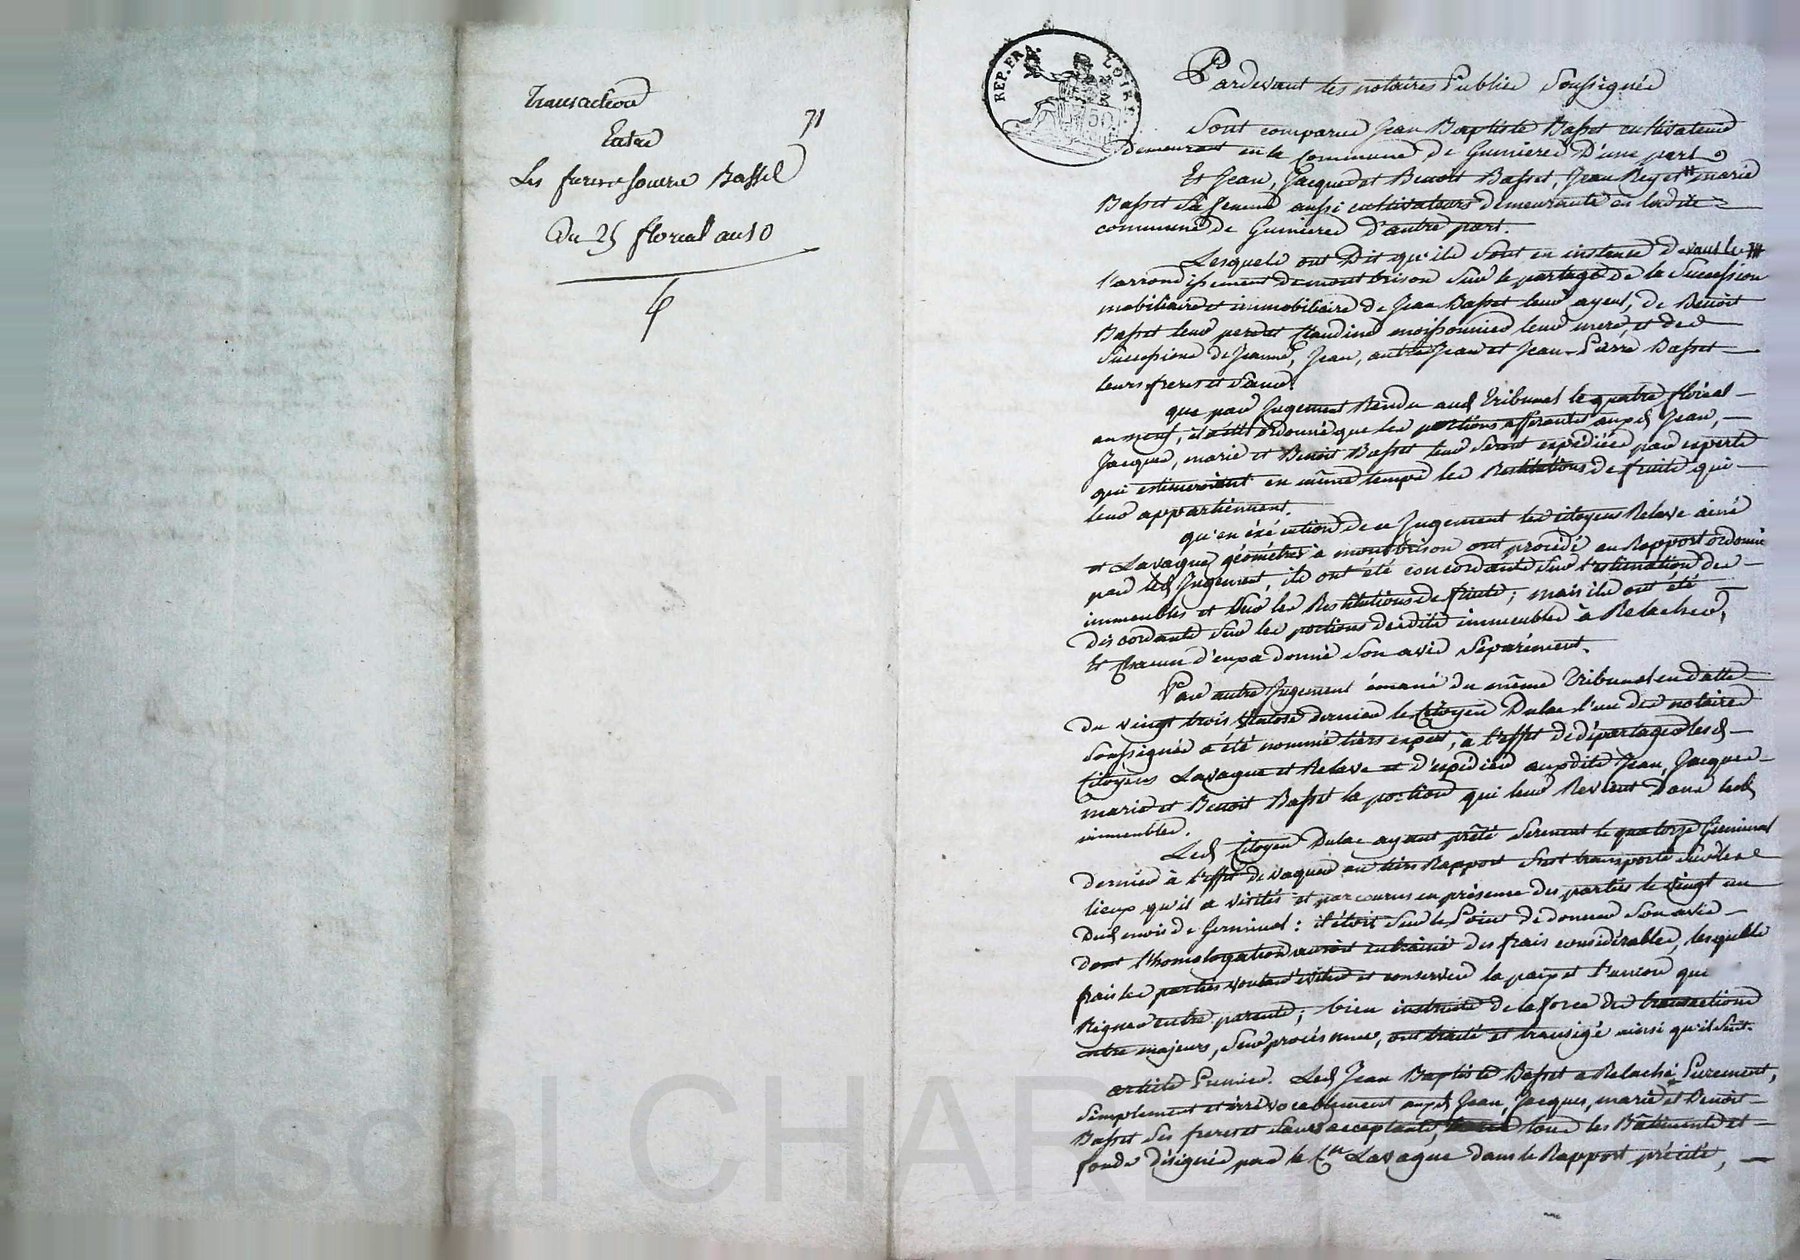 Transaction
Entre
71
Les freres et soeurs Basset
Du 25 floreal an 10
REP. FRA. LOIRE
50
Pardevant les notaires Publics Soussignés
Sont comparus Jean Baptiste Basset cultivateur
demeurant en la Commune de Gumieres D'une part
Et Jean, Jacques et Benoit Basset, Jean Rey et marie
Basset sa femme aussi cultivateurs demeurants en ladite
commune de Gumieres d'autre part.
Lesquels ont Dit qu'ils sont en instance devant le
l'arrondissement de montbrison sur le partage de la Succession
mobiliaire et immobiliaire de Jean Basset leur ayeul, de Benoit
Basset leur pere et Claudine moissonnier leur mere, et des
Successions de Jeanne, Jean, autre Jean et Jean-Pierre Basset
leurs freres et Sœurs.
que par Jugement Rendu aud Tribunal le quatre floréal
an neuf, il a été ordonné que les portions afferantes auxd Jean,
Jacques, marie et Benoit Basset leur seront expédiées par experts
qui estimeroient en même temps les Restitutions de fruits qui
leur appartiennent.
qu'en éxécution de ce Jugement les citoyens Relave ainé
et Lavague géometres à montbrison ont procédé au Rapport ordonné
par led Jugement, ils ont été concordants sur l'estimation des
immeubles et sur les Restitutions de fruits; mais ils ont été
discordants sur les portions desdits immeubles à Relacher,
Et chacun d'eux a donné son avis séparément.
Par autre Jugement émané du même Tribunal en datte
du vingt trois Ventose dernier le Citoyen Dulac l'un des notaires
soussignés a été nommé tiers expert, à l'effet de départager lesd
Citoyens Lavague et Relave et d'expédier auxdits Jean, Jacques
marie et Benoit Basset la portion qui leur Revient dans lesd
immeubles.
Led Citoyen Dulac ayant prêté serment le quatorze Germinal
dernier à l'effet de vaquer au tiers Rapport s'est transporté sur les
lieux qu'il a visités et parcourus en présence des parties le vingt un
dud mois de Germinal: il étoit sur le Point de donner son avis
dont l'homologation auroit entrainé des frais considérables, lesquels
frais les parties voulant éviter et conserver la paix et l'union qui
Regner entre parents; bien instruits de la force des transactions
entre majeurs, sur procès mue, ont traité et transigé ainsi qu'il suit.
article Premier. Led Jean Baptiste Basset a Relaché Purement,
simplement et irrévocablement auxd Jean, Jacques, marie et Benoit
Basset ses freres et sœurs acceptants, tous les Bâtiments et
fonds désignés par le Cen Lavague dans le Rapport précité,
scal CHAREYRON